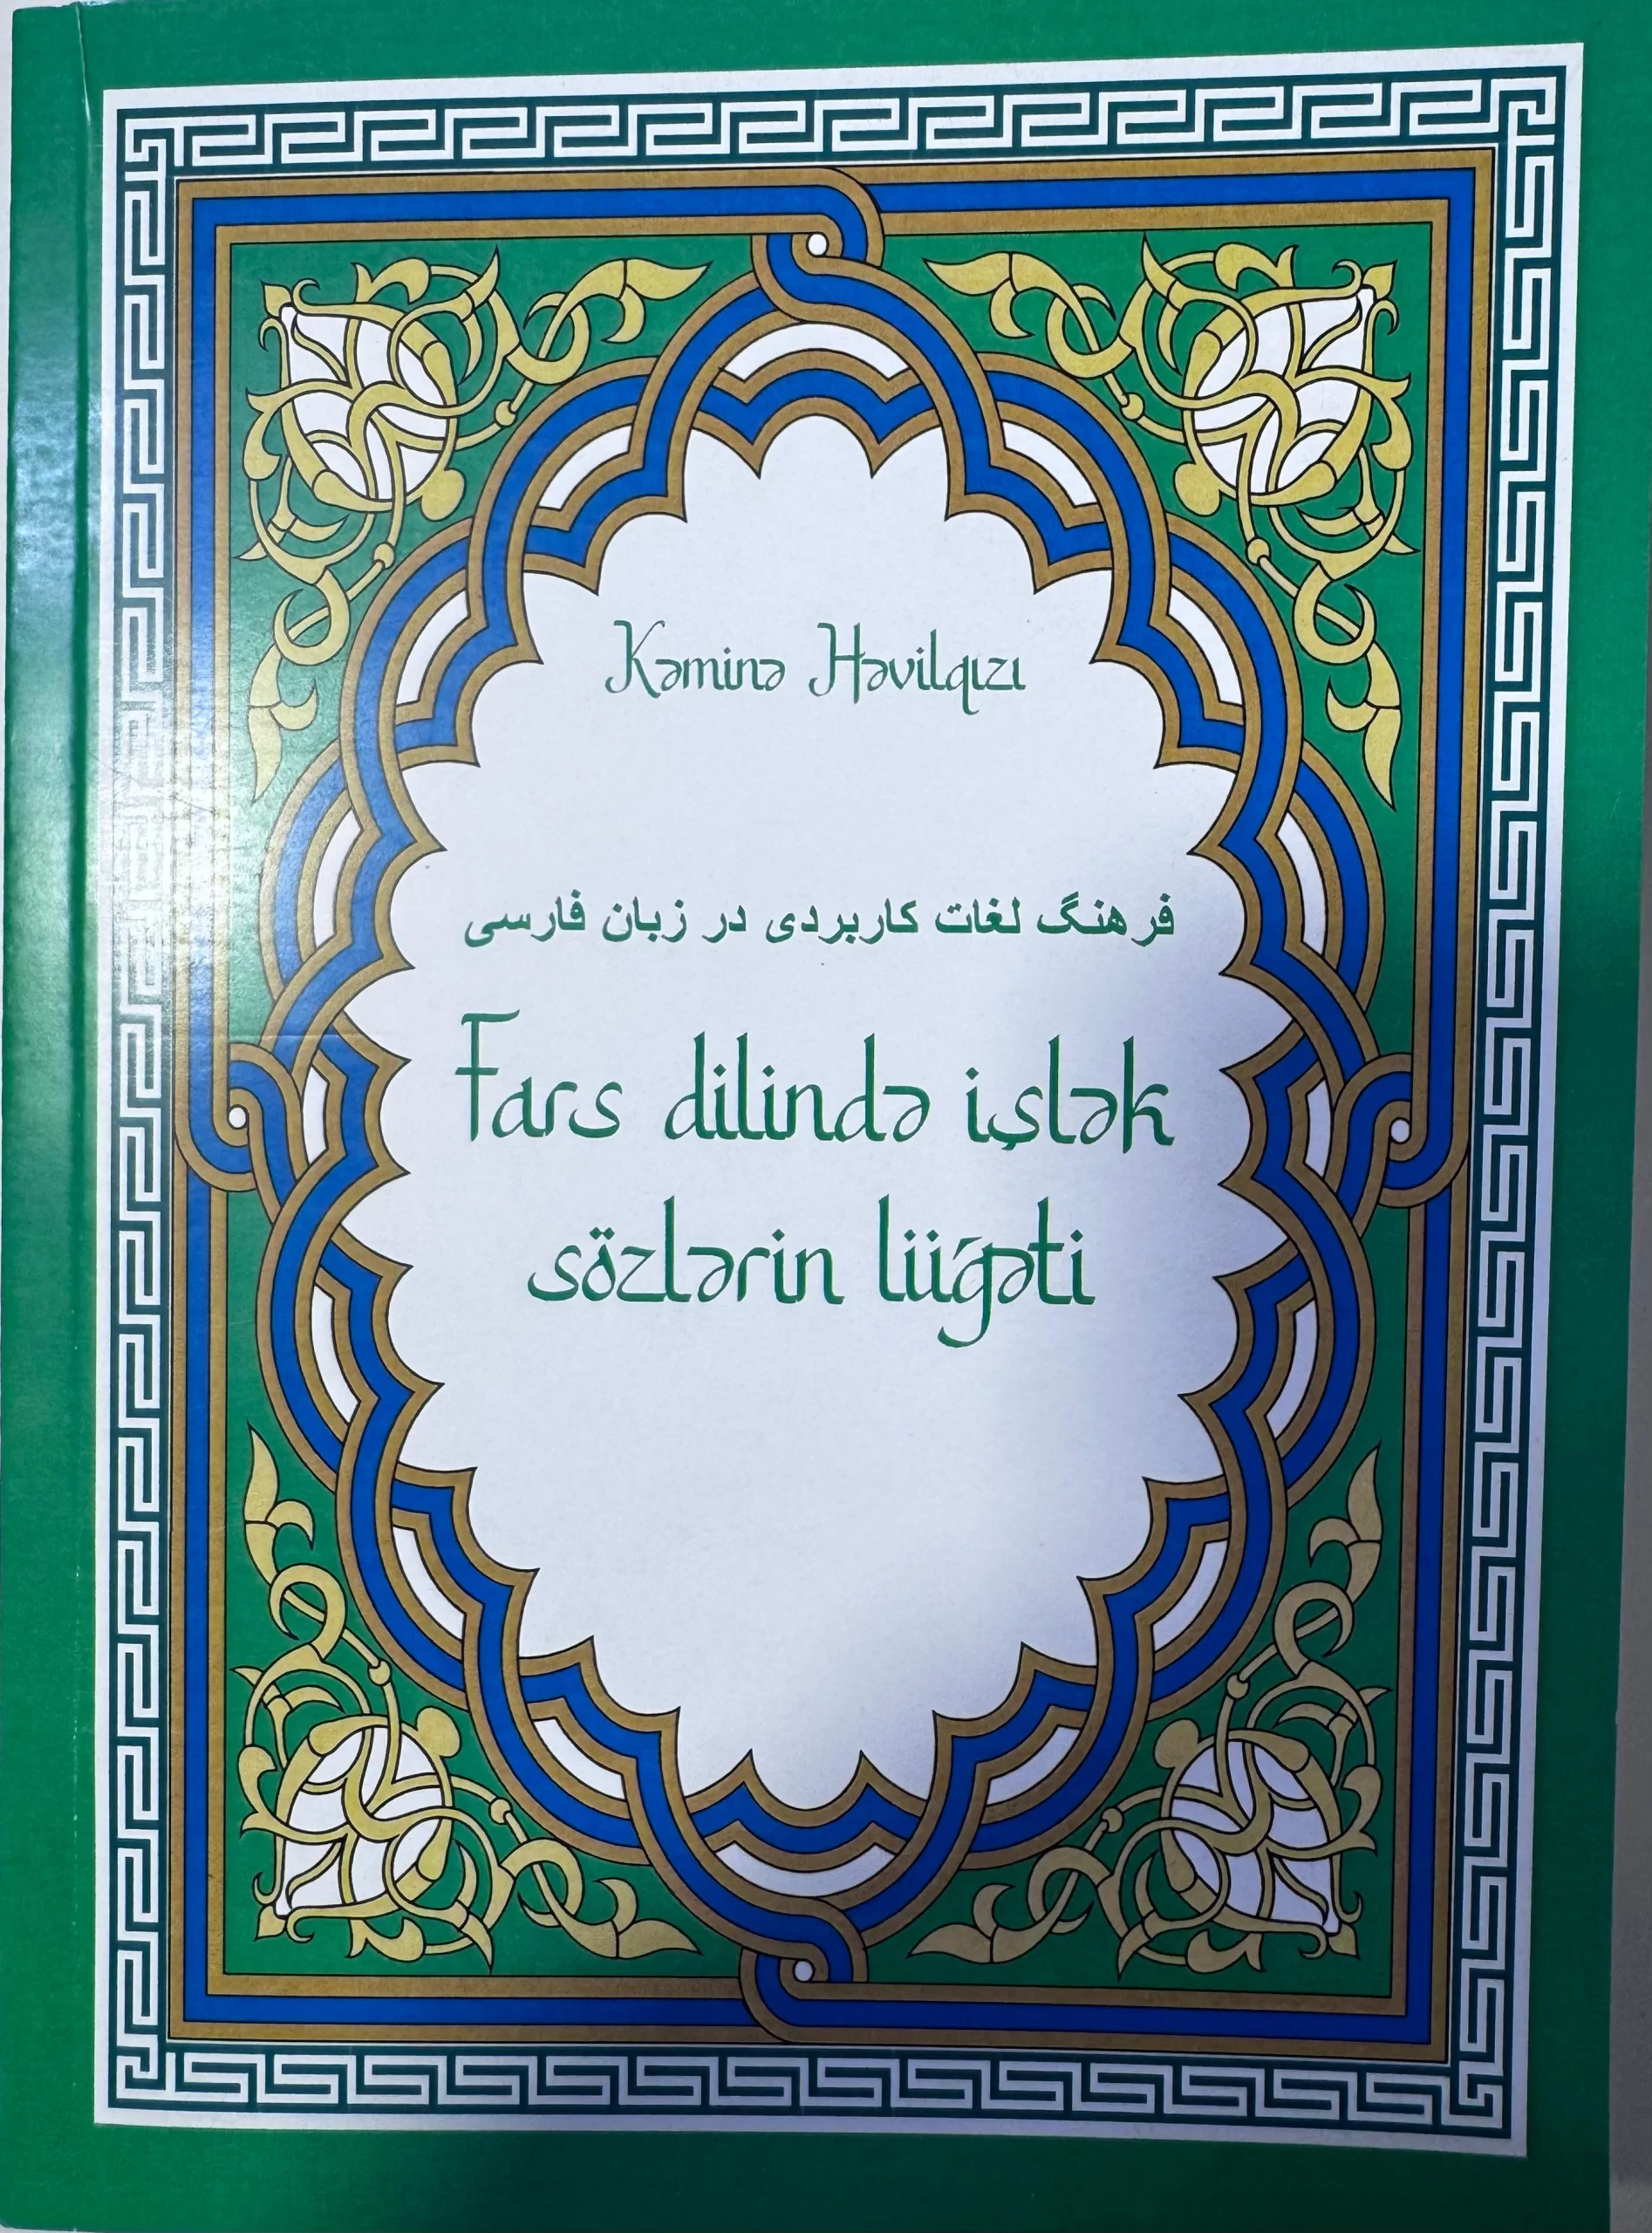 Kəminə Həvilqızı
فرهنگ لغات کاربردی در زبان فارسی
Fars dilində işlək
sözlərin lüğəti